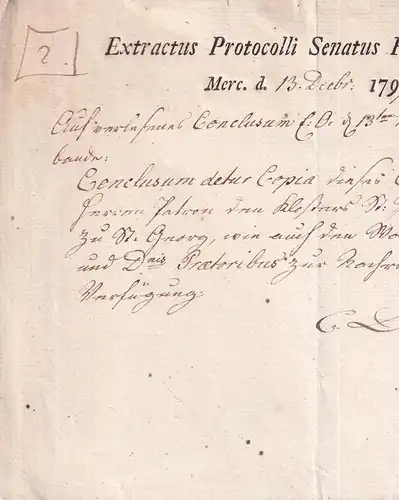 2.
Extractus Protocolli Senatus
Merc. d. 13. Decbr. 179
Auf verlesenes Conclusum E. O. d 13ten
bande:
Conclusum detur Copia dieses
Herren Patron den Klosters St:
zu St. Georg, wie auch den
und Dnis Prætoribus zur Nachr
Verfügung.